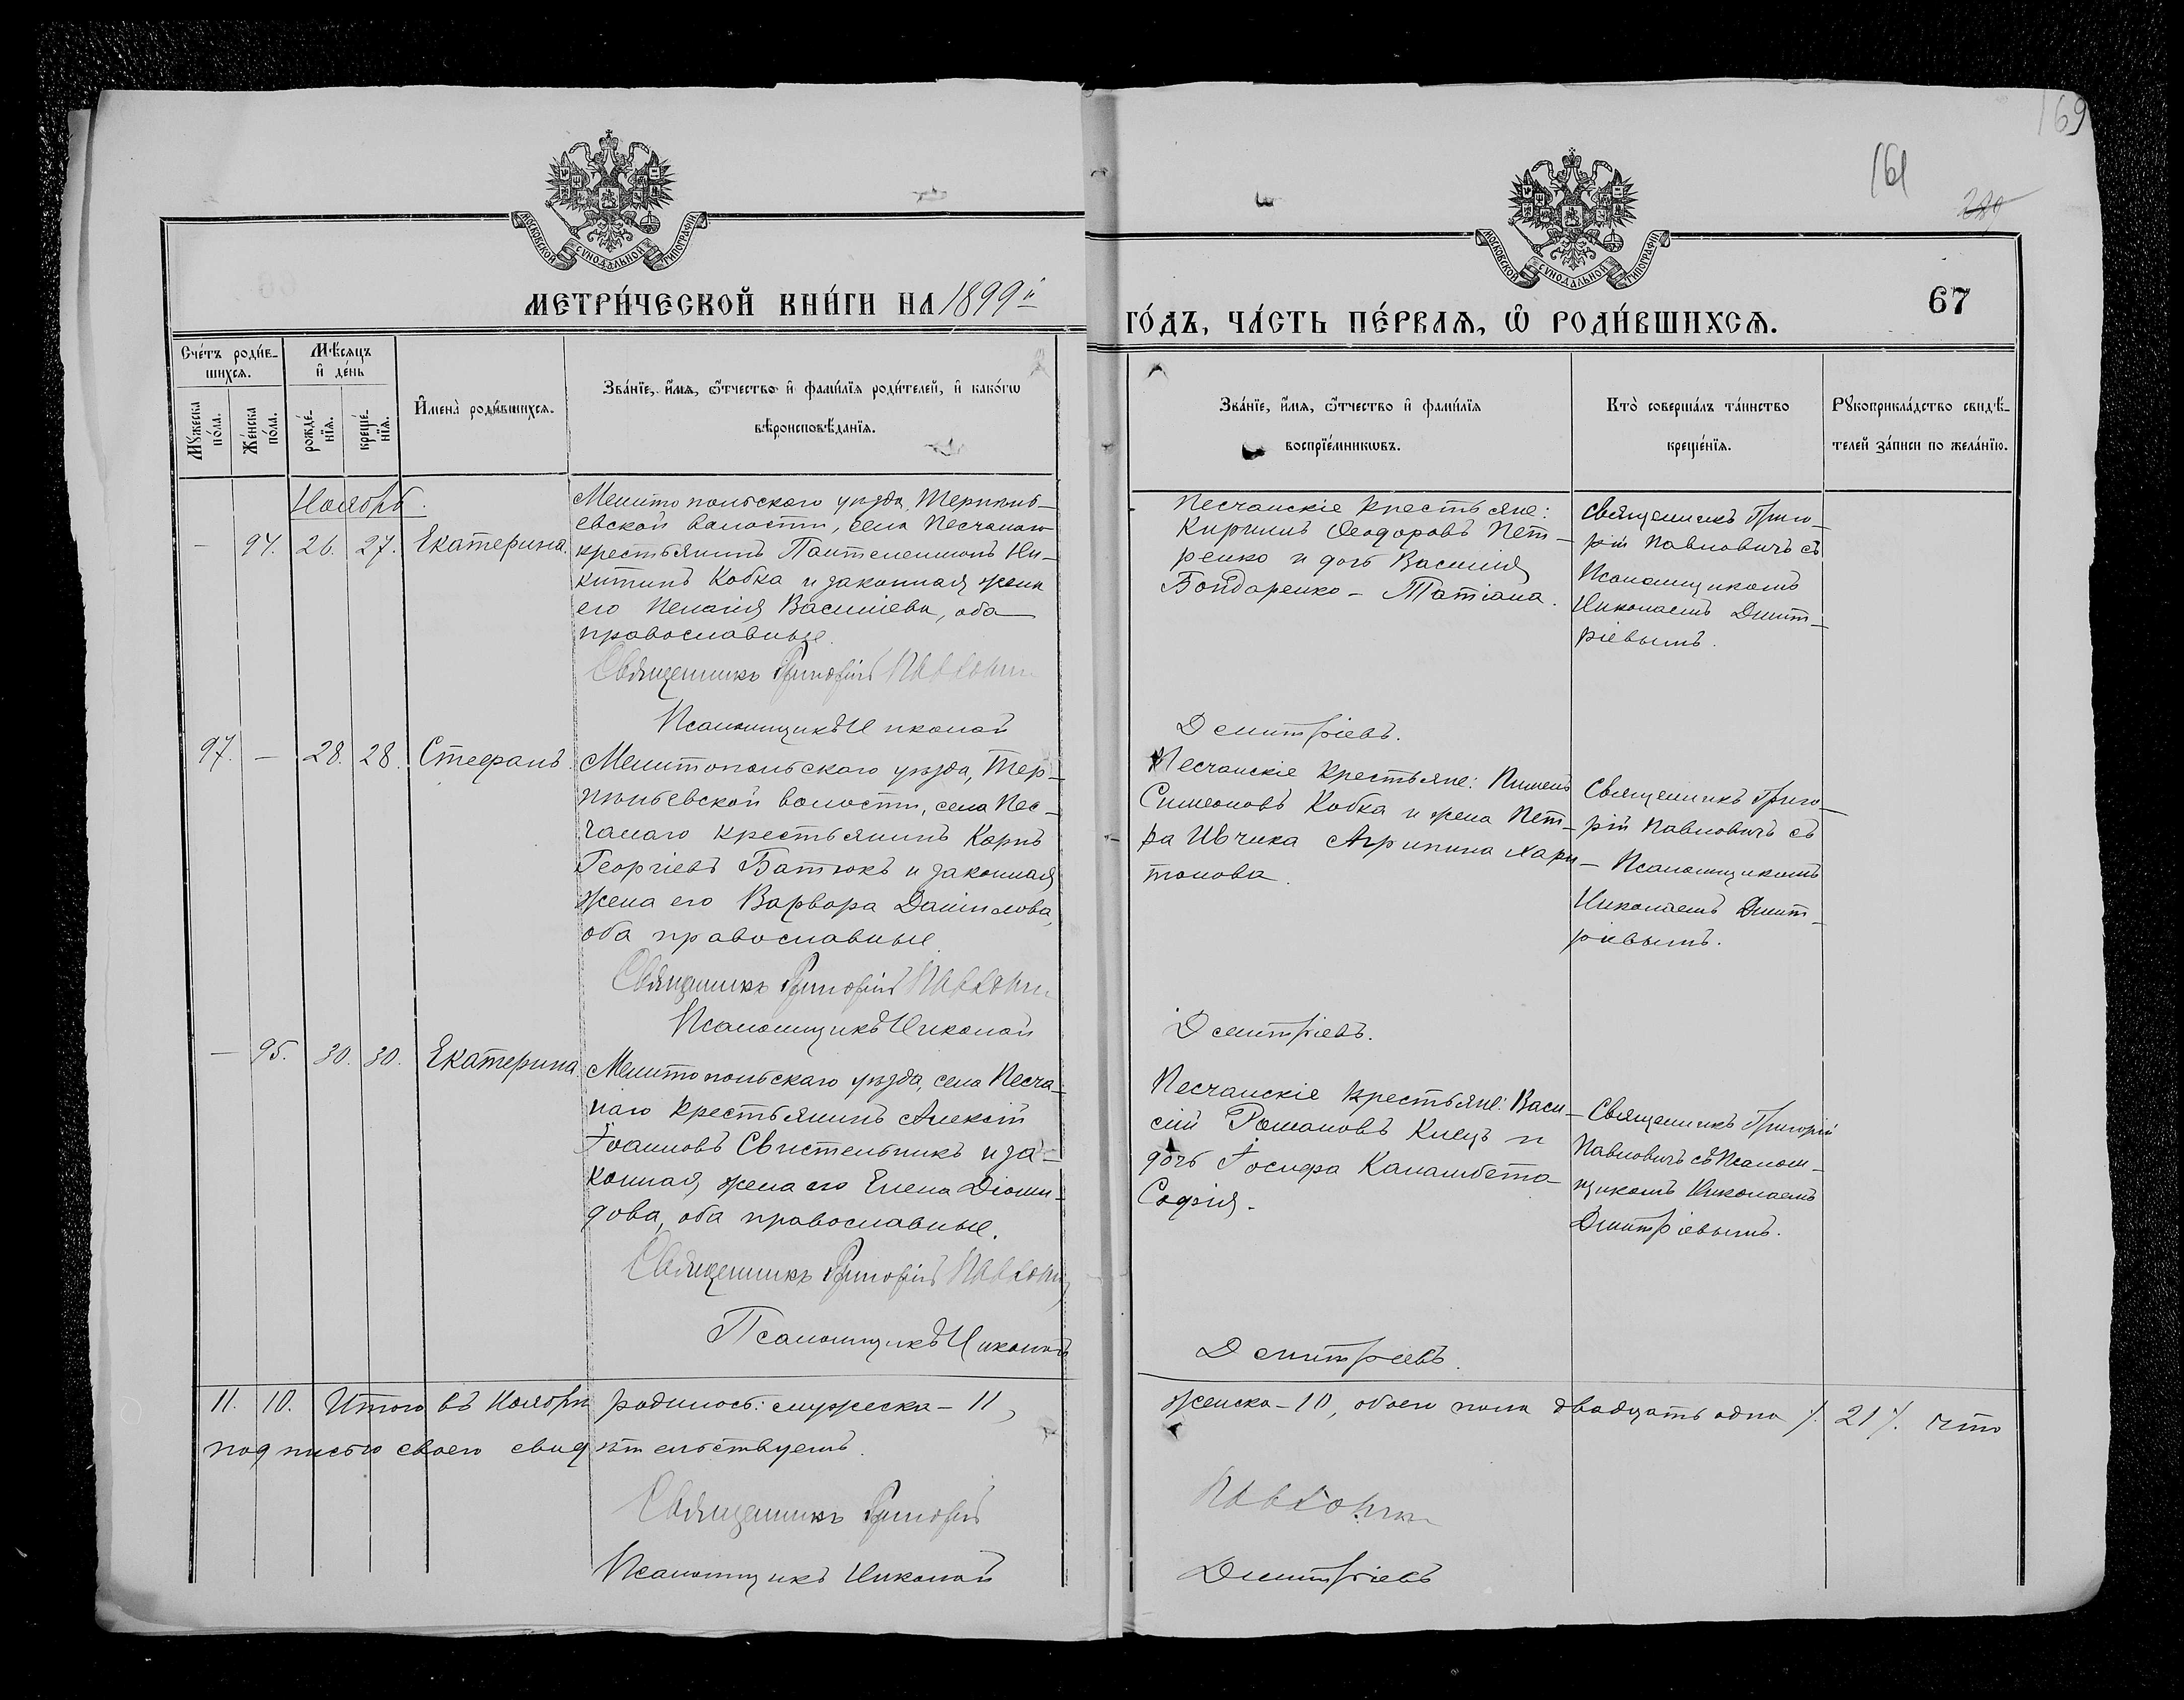 169
161
280
МОСКОВСКОЙ СУНОДАЛЬНОЙ ТИПОГРАФІИ
МОСКОВСКОЙ СУНОДАЛЬНОЙ ТИПОГРАФІИ
МЕТРИ́ЧЕСКОЙ КНИ́ГИ НА 1899й
ГО́ДЪ, ЧА́СТЬ ПЕ́РВАЯ, Ѡ РОДИ́ВШИХСЯ.
67
Сче́тъ роди́в-
шихся.
Мѣсяцъ
и҆ де́нь
Мꙋжеска по́ла.
Же́нска по́ла.
рожде́-
нїѧ.
креще́-
нїѧ.
И҆мена̀ роди́вшихсѧ.
Зва́нїе, и҆́мѧ, ѻ҆́тчество и҆ фами́лїѧ роди́телей, и҆ како́гѡ
вѣроисповѣ́данїѧ.
Зва́нїе, и҆́мѧ, ѻ҆́тчество и҆ фами́лїѧ
воспрїе́мникѡвъ.
Кто̀ соверша́лъ та́инство
креще́нїѧ.
Рꙋкоприкла́дство свидѣ́-
телей за́писи по жела́нїю.
Ноябрь.
— 94. 26. 27. Екатерина.
Мелитопольскаго уѣзда, Терпень-
евской волости, села Песчанаго
крестьянинъ Пантелеимонъ Ни-
китинъ Кобка и законная жена
его Пелагія Васильева, оба
православные.
Священникъ Григорій Павловичъ
Псаломщикъ Николай
Песчанскіе крестьяне:
Кириллъ Ѳеодоровъ Пет-
ренко и дочь Василія
Бондаренко - Татіана.
Дмитріевъ.
Священникъ Григо-
рій Павловичъ съ
Псаломщикомъ
Николаемъ Дмит-
ріевымъ.
97. — 28. 28. Стефанъ.
Мелитопольскаго уѣзда, Тер-
пеньевской волости, села Пес-
чанаго крестьянинъ Карпъ
Георгіевъ Батюкъ и законная
жена его Варвара Даніилова,
оба православные
Священникъ Григорій Павловичъ
Псаломщикъ Николай
Песчанскіе крестьяне: Пименъ
Симеоновъ Кобка и жена Пет-
ра Ивчика Агрипина Хари-
тонова.
Дмитріевъ.
Священникъ Григо-
рій Павловичъ съ
Псаломщикомъ
Николаемъ Дмит-
ріевымъ.
— 95. 30. 30. Екатерина.
Мелитопольскаго уѣзда, села Песча-
наго крестьянинъ Алексій
Іоанновъ Свистельникъ и за-
конная жена его Елена Діоми-
дова, оба православные.
Священникъ Григорій Павловичъ
Псаломщикъ Николай
Песчанскіе крестьяне: Васи-
лій Романовъ Кнецъ и
дочь Іосифа Каламбета
Софія.
Дмитріевъ.
Священникъ Григорій
Павловичъ съ Псалом-
щикомъ Николаемъ
Дмитріевымъ.
11. 10. Итого въ Ноябрѣ родилось: мужеска - 11, женска - 10, обоего пола двадцать одна /. 21 /. что
подписью своею свидѣтельствуемъ.
Священникъ Григорій Павловичъ
Псаломщикъ Николай Дмитріевъ